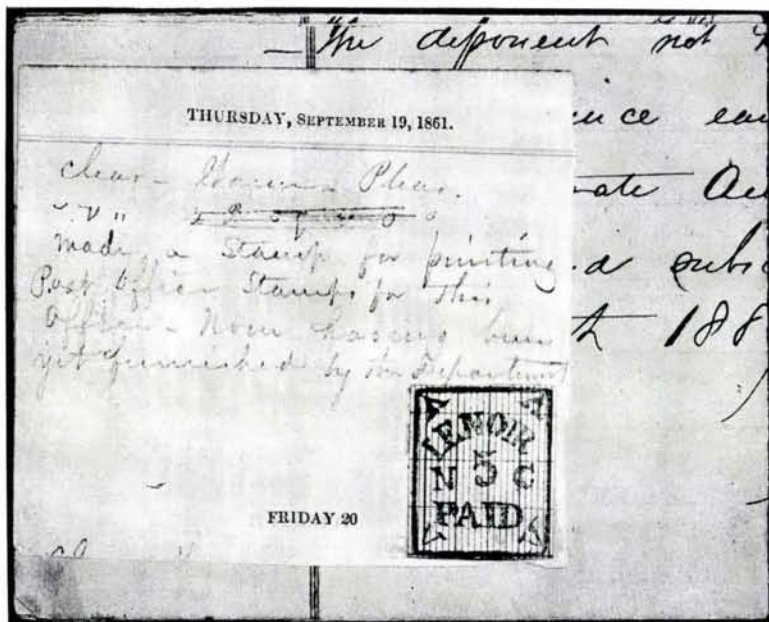 The deponent not
THURSDAY, SEPTEMBER 19, 1861.
clear - Warm - Pleas.
made a Stamp for printing
Post Office Stamps for This
Office - None having been
yet furnished by the Department
LENOIR
N 5 C
PAID
FRIDAY 20
188